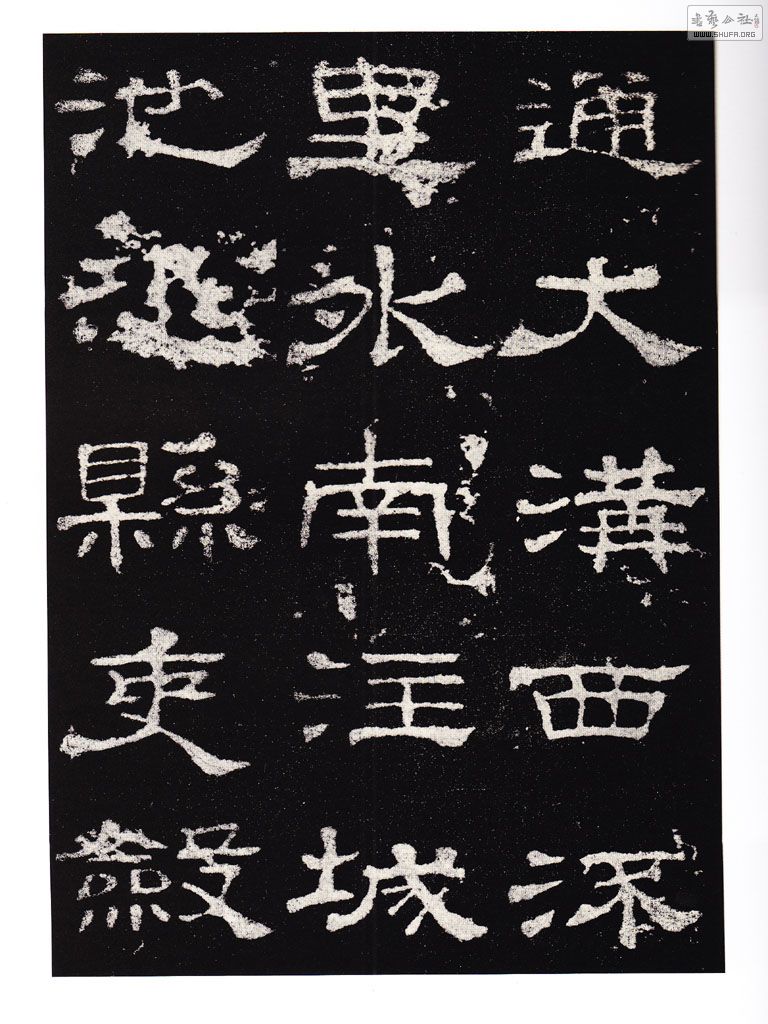 通大溝西流
里外南注城
池恐縣吏斂
書藝公社
WWW.SHUFA.ORG